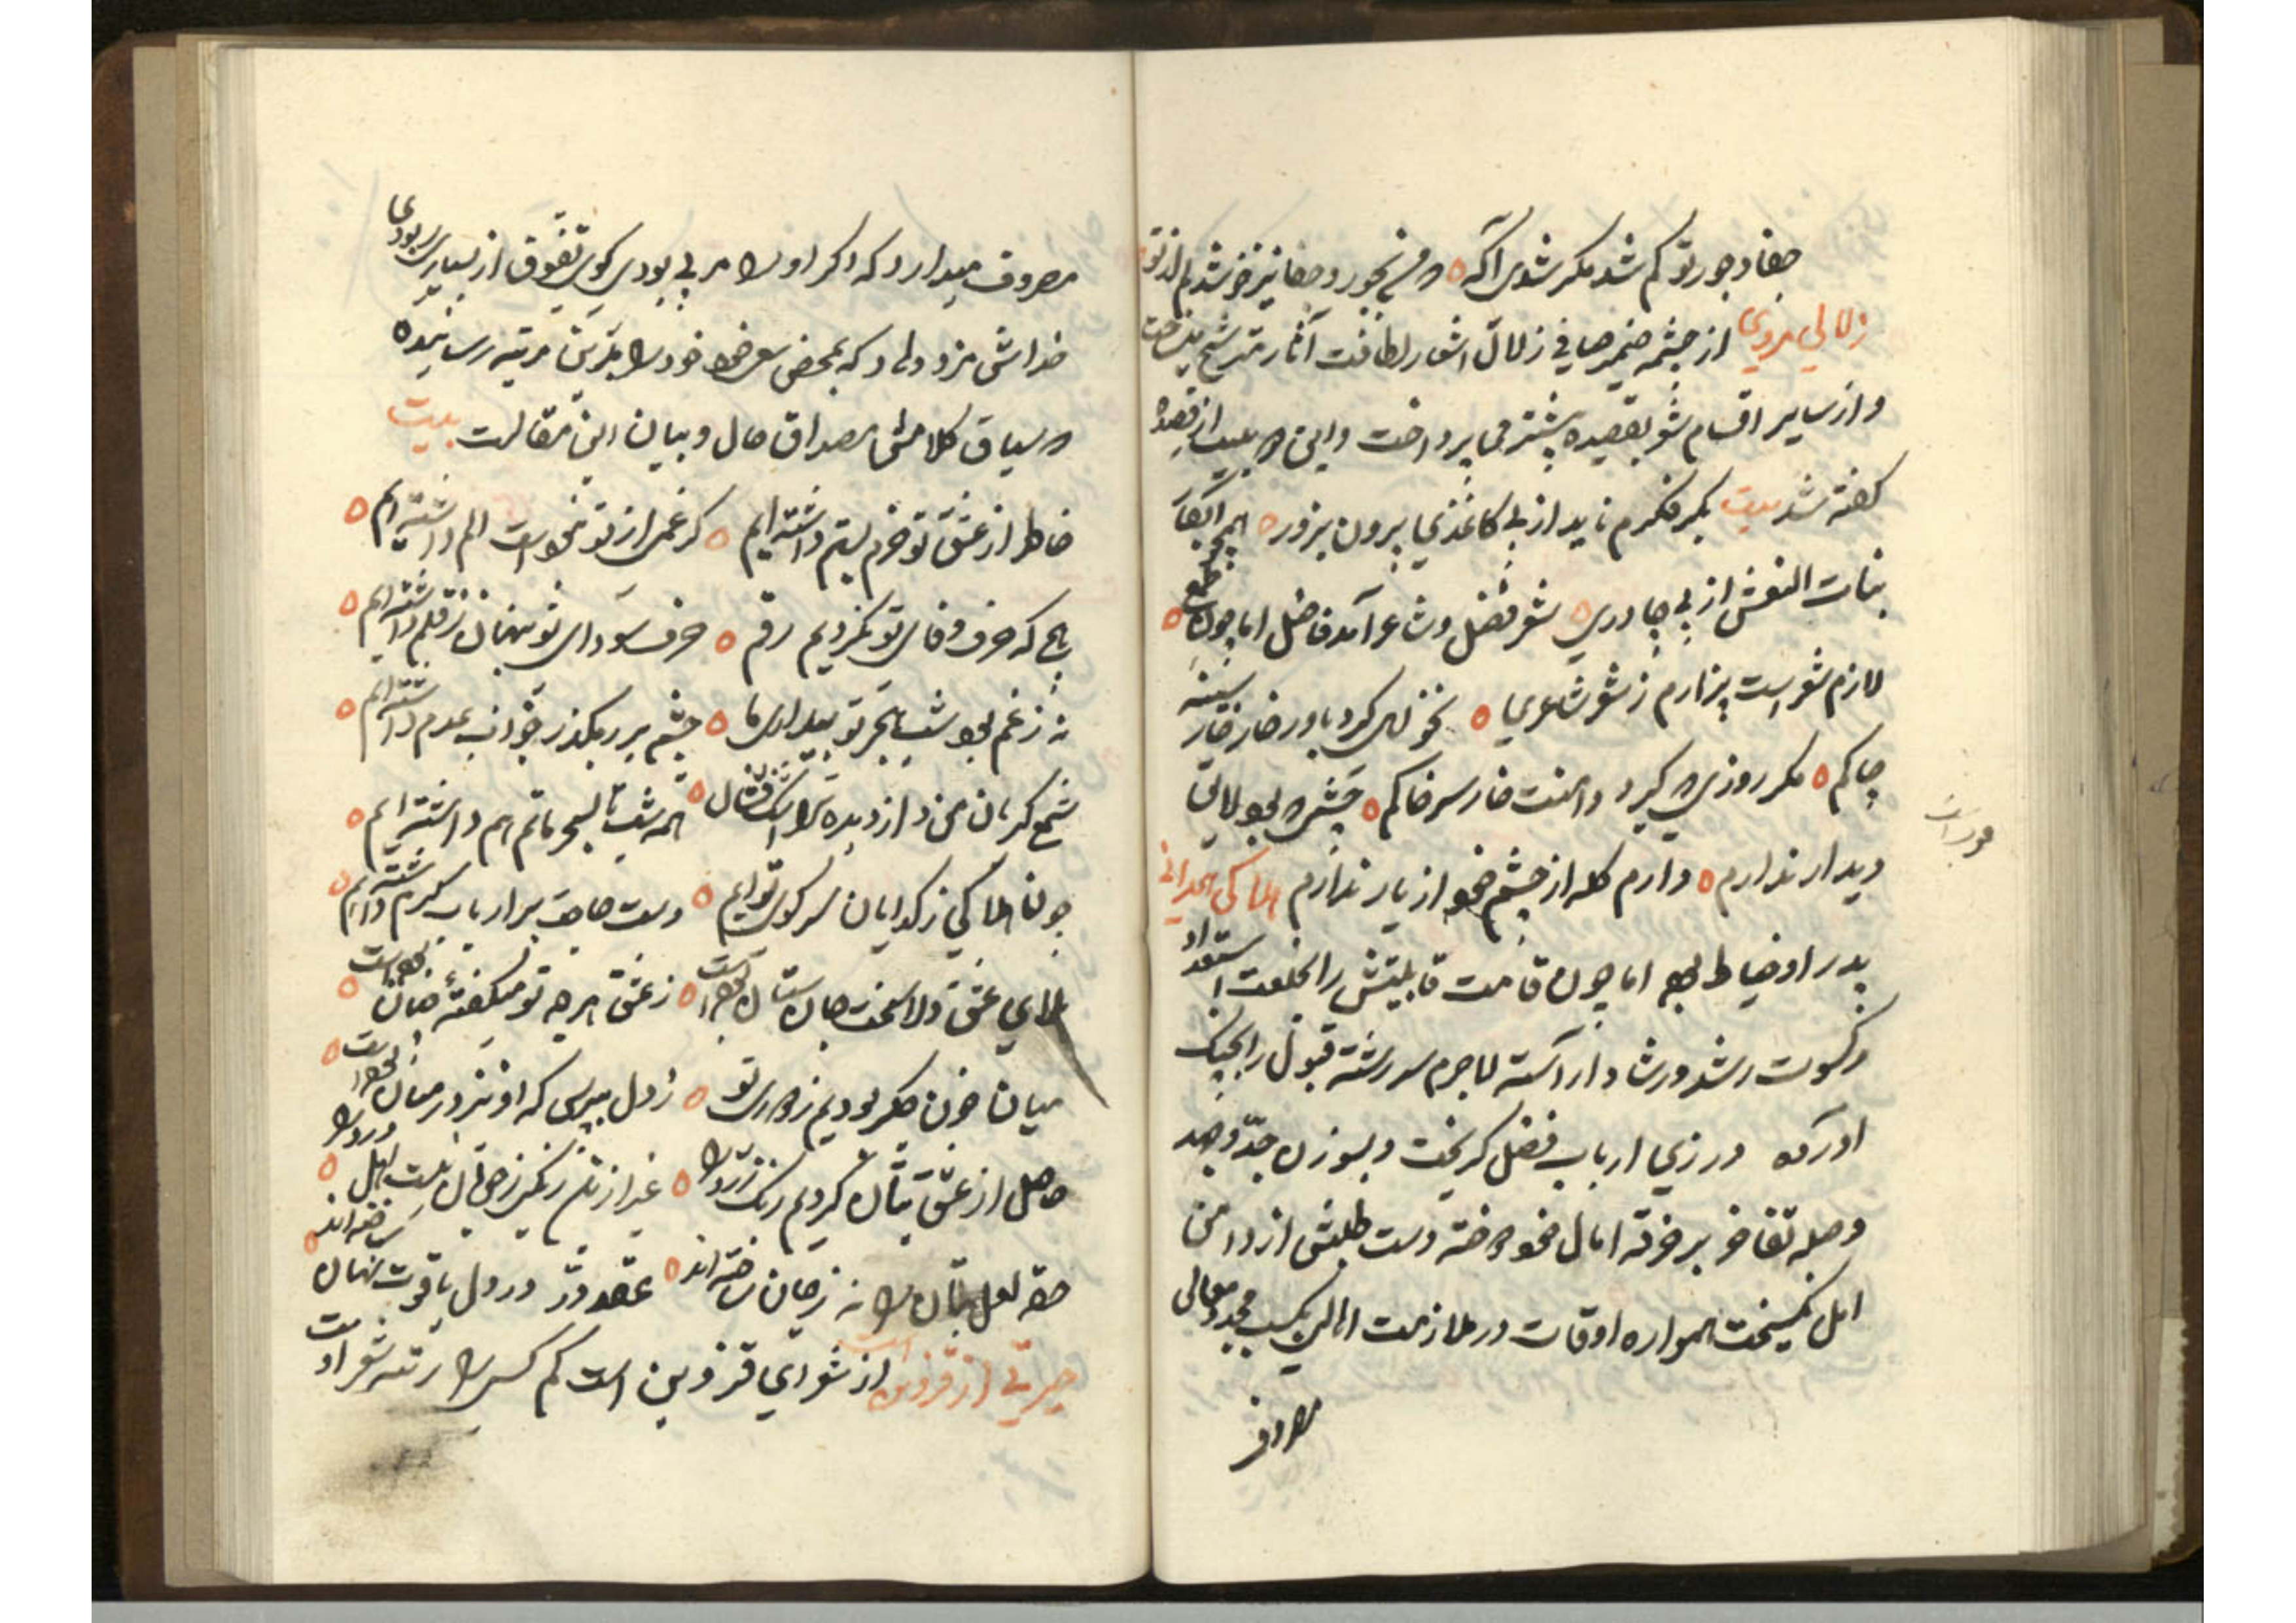 جفا و جور تو کم شد مکر شدی آکه که من بجور و جفا نیز خوشدلم از تو
زلالی هروی از چشمه ضمیر صافی زلال اشعار لطافت آثار مترشح میساخت
و از سایر اقسام شعر بقصیده بیشتر می پرداخت و این دو بیت از قصیده
کفته شد بیت بکر فکرم ناید از بی کاغذی بیرون بزور همچو
بنات النعش از بی چادری شعر فضل و شاعر آمد فاضل اما چون طمع
لازم شعر است بیزارم ز شعر و شاعری نخواهی کرد باور خار خار سینه
چاکم مکر روزی که کیرد دامنت خار سر خاکم چشمی که بود لایق
دیدار ندارم دارم کله از چشم خود از یار ندارم هلاکی همدانی
پدر او خیاط بود اما چون قامت قابلیتش را بخلعت استعداد
و کسوت رشد و رشاد آراسته لاجرم سر رشته قبول را بچنک
آورده در زی ارباب فضل کریخت و بسوزن جد و جهد
وصله تفاخر بر خرقه آمال خود دوخته دست طلبش از دامن
اهل نمیکسیخت همواره اوقات در ملازمت اهالی بکسب مجد و معالی
مصروف
مصروف میدارد که اکر او را مربی بودی کوی تفوق از بسیاری ربودی
خداش مزد دهاد که بمحض سعی خود خود را بدین مرتبه رسانیده
و سیاق کلامش مصداق حال و بیان این مقالت بیت
خاطر از عشق تو خرم بستم داشته ایم کر غمی از تو نخواست الم داشته ایم
که حرف وفای تو نکردیم رقم حرف سودای تو پنهان ز قلم داشته ایم
نه ز غم بود شب هجر تو بیداری ما چشم بر رهکذر خواب عدم داشته ایم
شمع کریان من و از دیده تر اشک فشان همه شب تا بسحر ماتم هم داشته ایم
چون هلاکی ز کدایان سر کوی توایم دست حاجت بر ارباب کرم داشته ایم
بلای عشق دلا سخت جان ستان بوده است ز عشق هر چه تو میکفته چنان بوده است
میان خون جکر بودیم ز دوری تو ز دل بپرس که او نیز در میان بوده است
حاصل از عشق بتان کردیم رنک زرد را غیر ازین رنکی ز خوبان نیست اهل درد را
حقه لعل بتان را نه ز جان ساخته اند عقد در در دل یاقوت نهان ساخته اند
حیرتی از قزوین است از شعرای قزوین است کم کسی را رتبه شعر اوست